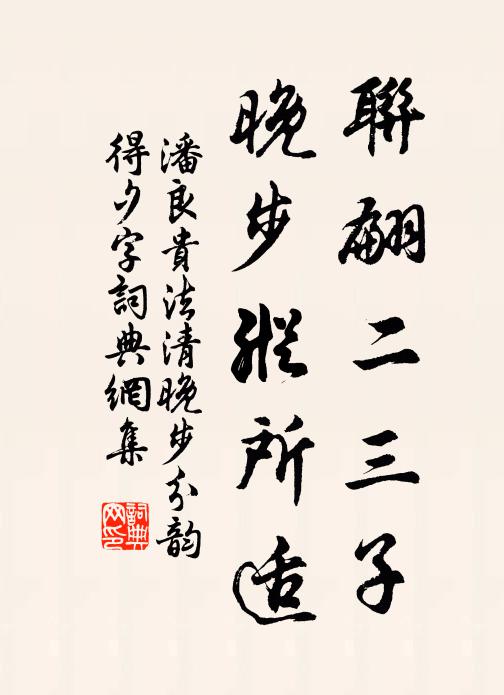 聯翩二三子
晚步縱所适
潘良貴法清晚步分韵
得夕字詞典網集
詞典
网印